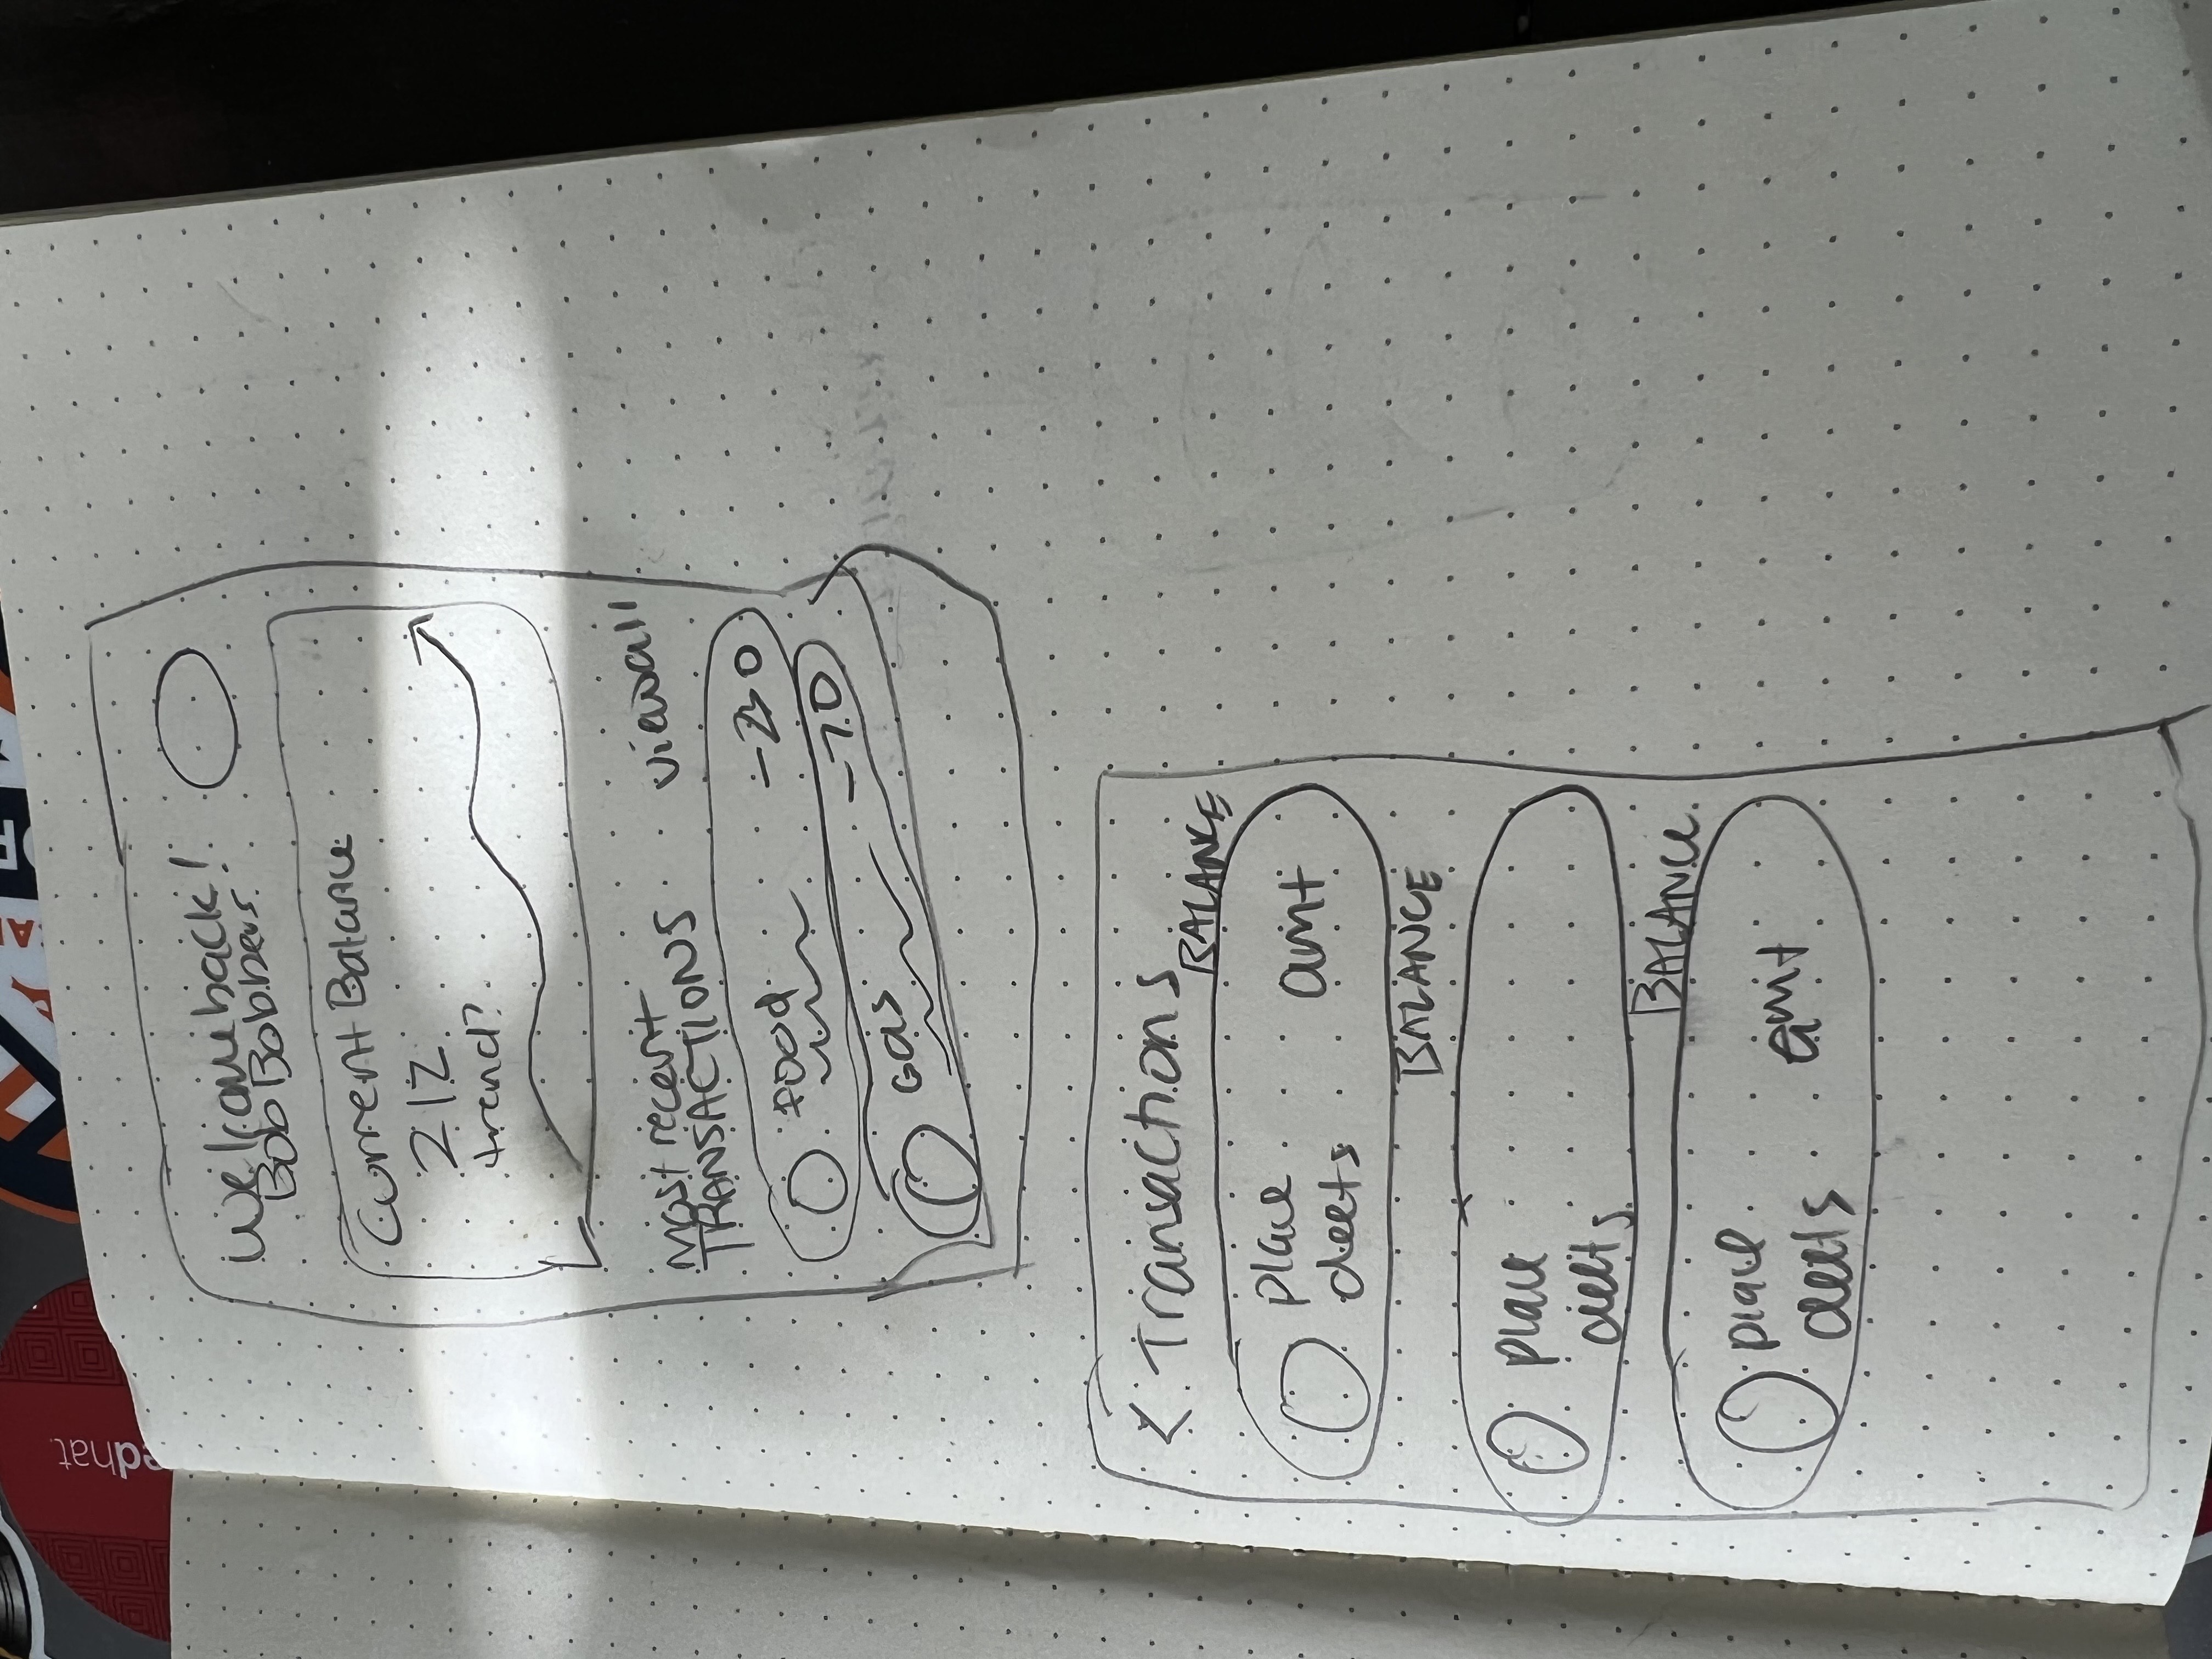 edhat.
Welcome back!
Bob Bobbers.
Current Balance
212
trend?
Most recent
TRANSACTIONS
view all
Food
-230
Gas
-70
< Transactions
BALANCE
place
deets
amt
BALANCE
place
deets
BALANCE
place
deets
amt